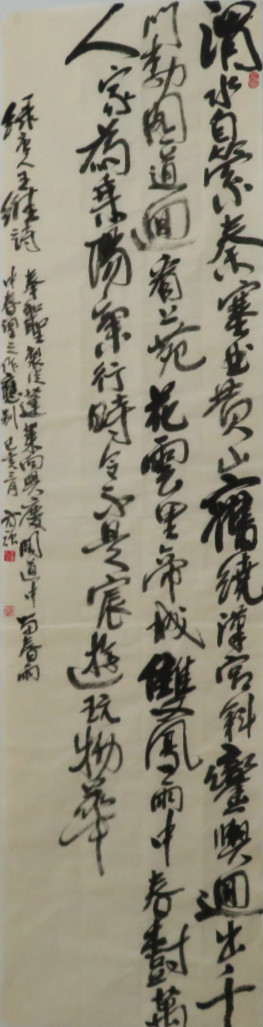 渭水自縈秦塞曲黃山舊繞漢宮斜鑾輿迴出千
門閣道迴看上苑花雲里帝城雙鳳雨中春樹萬
人家為乘陽氣行時令不是宸遊玩物華
錄唐人王維詩
奉和聖製從蓬萊向興慶閣道中留春雨
中春望之作應制 己亥